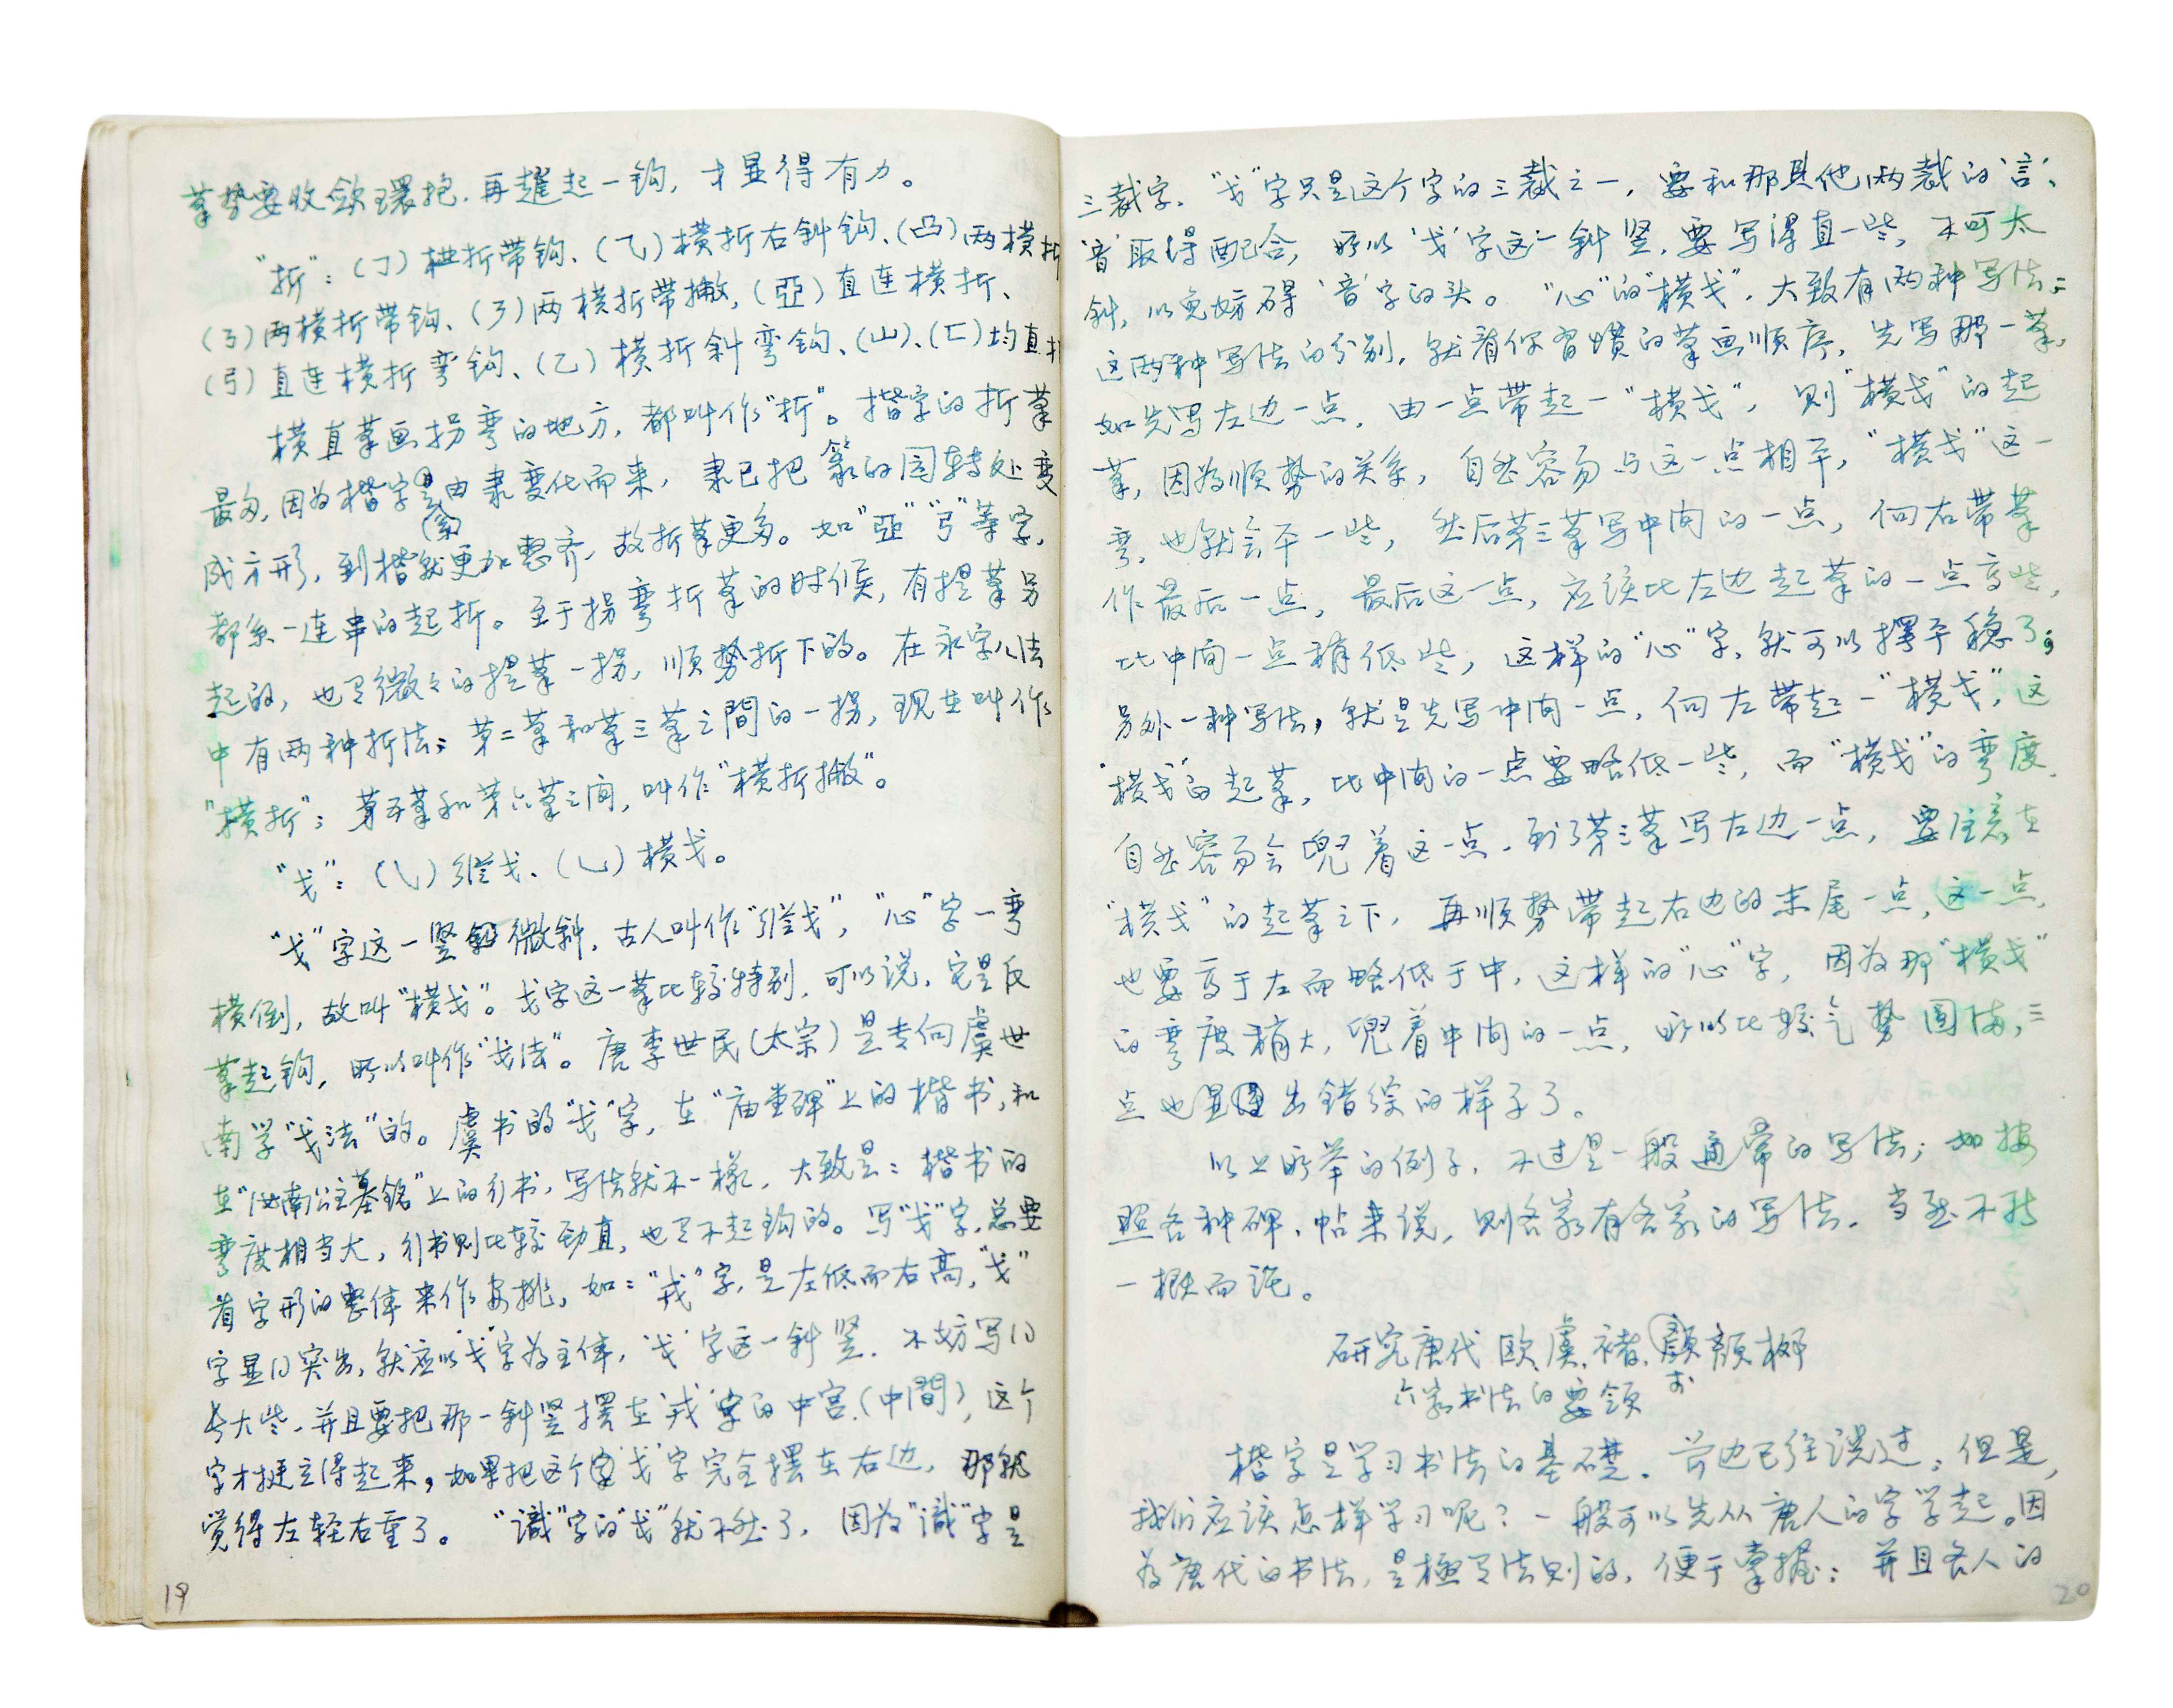 筆势要收歛環抱．再趯起一钩，才显得有力。
“折”：（𠃌）横折带钩、（⺄）横折右斜钩、（凸）两横折
（㇋）两横折带钩、（㇋）两横折带撇，（亞）直连横折、
（弓）直连横折弯钩、（乙）横折斜弯钩、（山）、（匚）均直折
横直筆画拐弯的地方，都叫作“折”。楷字的折筆
最多，因为楷字是由隶变化而来，隶已把篆的园转处变
成方形，到楷（字）就更加整齐，故折筆更多。如“亞”“弓”等字，
都系一连串的起折。至于拐弯折筆的时候，有提筆另
起的，也有微々的提筆一拐，順势折下的。在永字八法
中有两种折法；第二筆和筆三筆之間的一拐，现在叫作
“横折”；第五筆和第六筆之间，叫作“横折撇”。
“戈”：（㇂）縱戈、（㇃）横戈。
“戈”字这一竖微斜，古人叫作“縱戈”，“心”字一弯
横倒，故叫“横戈”。戈字这一筆比较特别，可以说，它是反
筆起钩，所以叫作“戈法”。唐李世民（太宗）是专向虞世
南学“戈法”的。虞书的“戈”字，在“庙堂碑”上的楷书，和
在“汝南公主墓銘”上的行书，写法就不一樣，大致是：楷书的
弯度相当大，行书则比较劲直，也有不起钩的。写“戈”字，总要
看字形的整体来作安排，如：“戎”字，是左低而右高，“戈”
字显的突出，就应以‘戈’字为主体，‘戈’字这一斜竖．不妨写的
长大些，并且要把那一斜竖摆在‘戎’字的中宫（中間），这个
字才挺立得起来，如果把这个字‘戈’字完全摆在右边，那就
觉得左轻右重了。“識”字的“戈”就不然了，因为“識”字是
19
三裁字．“戈”字只是这个字的三裁之一，要和那其他两裁的‘言’、
‘音’取得配合，所以‘戈’字这一斜竖，要写得直一些，不可太
斜，以免妨碍‘音’字的头。“心”的“横戈”，大致有两种写法；
这两种写法的分别，就看你習慣的筆画順序，先写那一筆，
如先写左边一点，由一点带起一“横戈”，则“横戈”的起
筆，因為順势的关系，自然容易与这一点相平，“横戈”这一
弯，也就会平一些，然后第三筆写中间的一点，向右带筆
作最后一点，最后这一点，应该比左边起筆的一点高些，
比中间一点稍低些，这样的“心”字，就可以擺平稳了；
另外一种写法，就是先写中间一点，向左带起一“横戈”，这
“横戈”的起筆，比中间的一点要略低一些，而“横戈”的弯度，
自然容易会兜着这一点．到了第三筆写左边一点，要注意在
“横戈”的起筆之下，再順势带起右边的末尾一点，这一点，
也要高于左而略低于中，这样的“心”字，因为那“横戈”
的弯度稍大，兜着中间的一点，所以比较气势圆满，三
点也显出错综的样子了。
以上所举的例子，不过是一般通常的写法；如按
照各种碑、帖来说，则各家有各家的写法，当然不能
一概而论。
研究唐代欧、虞、褚、顔柳
六家书法的要领
楷字是学习书法的基礎．前边已经说过，但是，
我们应该怎样学习呢？一般可以先从唐人的字学起。因
为唐代的书法，是極有法则的，便于掌握；并且各人的
20